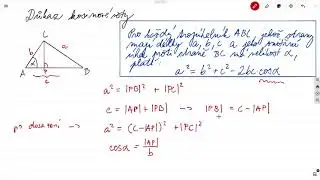 Důkaz kosinové věty
Pro každý trojúhelník ABC, jehož strany
mají délky a, b, c a jehož vnitřní
úhel proti straně BC má velikost α,
platí:
a² = b² + c² - 2bc cosα
C
b
a
α
A
P
c
a² = |PB|² + |PC|²
c = |AP| + |PB| → |PB| = c - |AP|
po dosazení → a² = (c - |AP|)² + |PC|²
cosα = |AP|/b